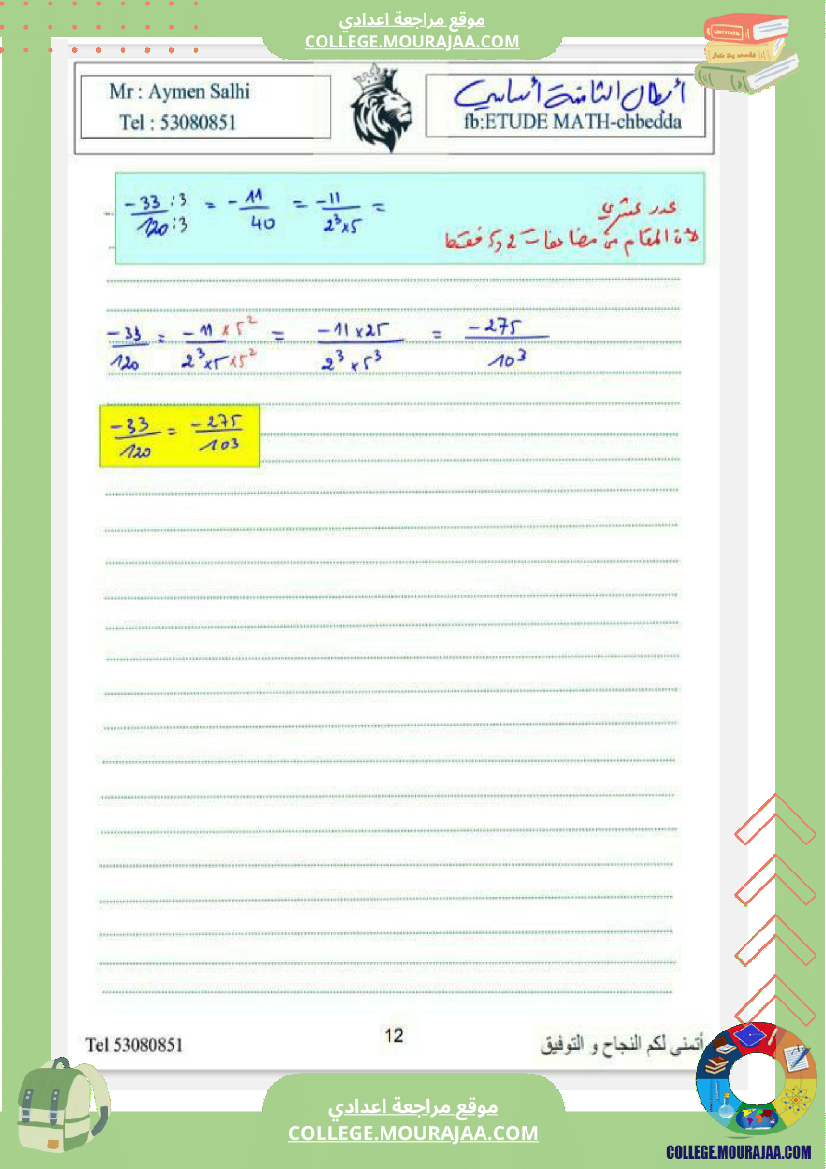 موقع مراجعة اعدادي
COLLEGE.MOURAJAA.COM
Mr : Aymen Salhi
Tel : 53080851
أبطال الثامنة أساسي
fb:ETUDE MATH-chbedda
-33 :3 / 120 :3 = -11/40 = -11/2³×5 =
عدد عشري
لأن المقام من مضاعفات 2 و 5 فقط
-33/120 = -11×5²/2³×5×5² = -11×25/2³×5³ = -275/10³
-33/120 = -275/103
Tel 53080851
12
أتمنى لكم النجاح و التوفيق
موقع مراجعة اعدادي
COLLEGE.MOURAJAA.COM
COLLEGE.MOURAJAA.COM